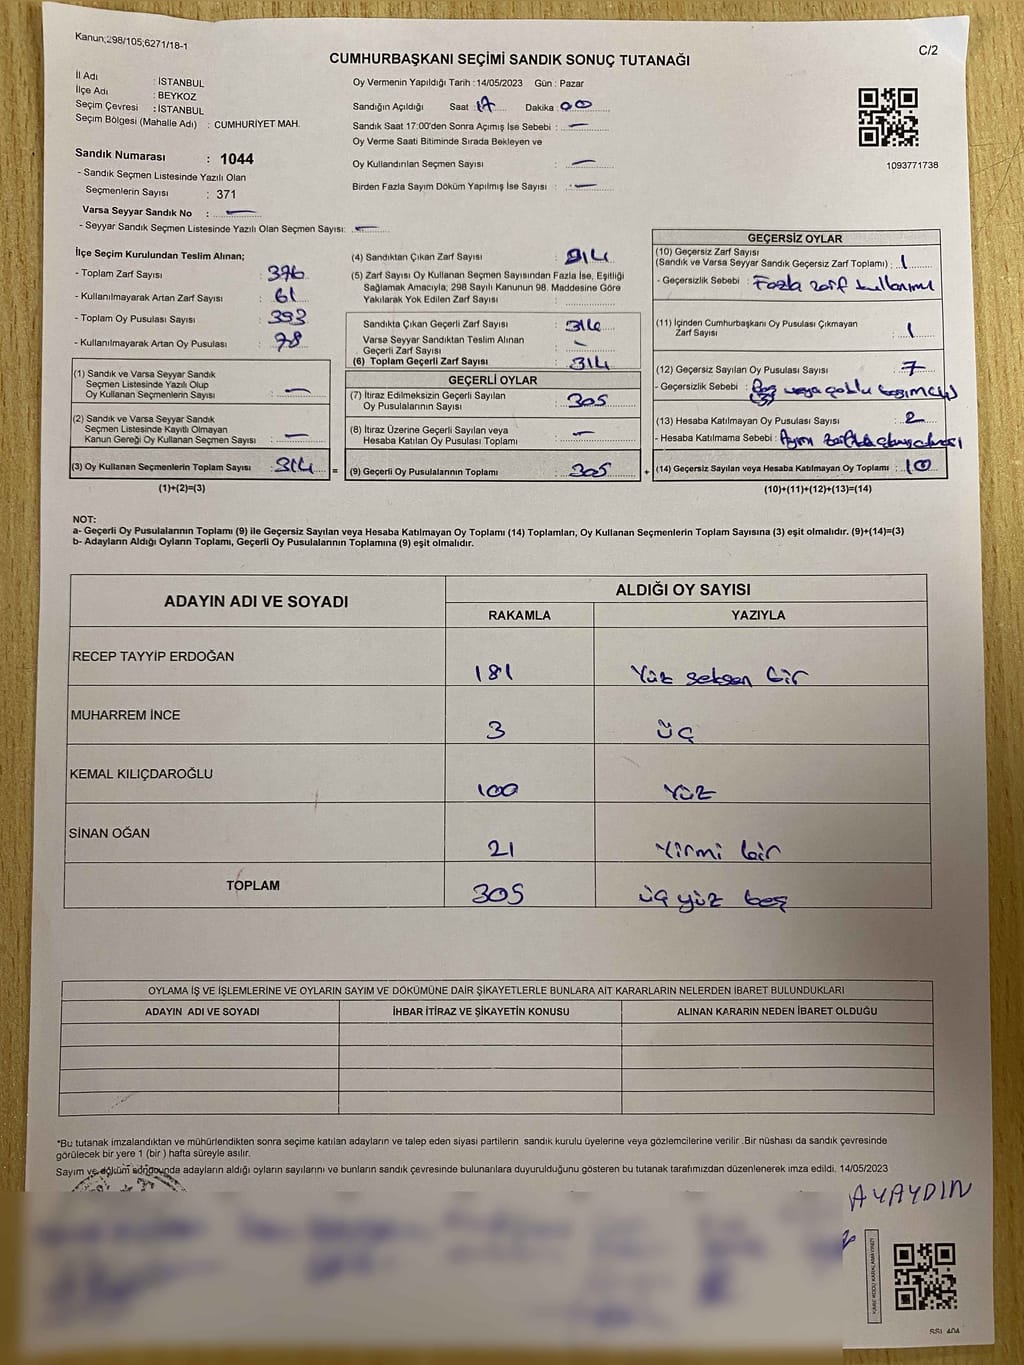 Kanun;298/105;6271/18-1
C/2
CUMHURBAŞKANI SEÇİMİ SANDIK SONUÇ TUTANAĞI
İl Adı : İSTANBUL
İlçe Adı : BEYKOZ
Seçim Çevresi : İSTANBUL
Seçim Bölgesi (Mahalle Adı) : CUMHURİYET MAH.
Sandık Numarası : 1044
- Sandık Seçmen Listesinde Yazılı Olan
Seçmenlerin Sayısı : 371
Varsa Seyyar Sandık No : —
- Seyyar Sandık Seçmen Listesinde Yazılı Olan Seçmen Sayısı: —
Oy Vermenin Yapıldığı Tarih : 14/05/2023 Gün : Pazar
Sandığın Açıldığı Saat : 17 Dakika : 00
Sandık Saat 17:00'den Sonra Açımış İse Sebebi : —
Oy Verme Saati Bitiminde Sırada Bekleyen ve
Oy Kullandırılan Seçmen Sayısı : —
Birden Fazla Sayım Döküm Yapılmış İse Sayısı : —
1093771738
İlçe Seçim Kurulundan Teslim Alınan;
- Toplam Zarf Sayısı : 376
- Kullanılmayarak Artan Zarf Sayısı : 61
- Toplam Oy Pusulası Sayısı : 393
- Kullanılmayarak Artan Oy Pusulası : 78
(1) Sandık ve Varsa Seyyar Sandık
Seçmen Listesinde Yazılı Olup
Oy Kullanan Seçmenlerin Sayısı : —
(2) Sandık ve Varsa Seyyar Sandık
Seçmen Listesinde Kayıtlı Olmayan
Kanun Gereği Oy Kullanan Seçmen Sayısı : —
(3) Oy Kullanan Seçmenlerin Toplam Sayısı : 314
(1)+(2)=(3)
(4) Sandıktan Çıkan Zarf Sayısı : 314
(5) Zarf Sayısı Oy Kullanan Seçmen Sayısından Fazla İse, Eşitliği
Sağlamak Amacıyla; 298 Sayılı Kanunun 98. Maddesine Göre
Yakılarak Yok Edilen Zarf Sayısı :
Sandıkta Çıkan Geçerli Zarf Sayısı : 314
Varsa Seyyar Sandıktan Teslim Alınan
Geçerli Zarf Sayısı : —
(6) Toplam Geçerli Zarf Sayısı : 314
GEÇERLİ OYLAR
(7) İtiraz Edilmeksizin Geçerli Sayılan
Oy Pusulalarının Sayısı : 305
(8) İtiraz Üzerine Geçerli Sayılan veya
Hesaba Katılan Oy Pusulası Toplamı : —
= (9) Geçerli Oy Pusulalarının Toplamı : 305 +
GEÇERSİZ OYLAR
(10) Geçersiz Zarf Sayısı
(Sandık ve Varsa Seyyar Sandık Geçersiz Zarf Toplamı) : 1
- Geçersizlik Sebebi : Fazla zarf kullanımı
(11) İçinden Cumhurbaşkanı Oy Pusulası Çıkmayan
Zarf Sayısı : 1
(12) Geçersiz Sayılan Oy Pusulası Sayısı : 7
- Geçersizlik Sebebi : Boş veya çoklu
(13) Hesaba Katılmayan Oy Pusulası Sayısı : 2
- Hesaba Katılmama Sebebi : Aynı zarfda
(14) Geçersiz Sayılan veya Hesaba Katılmayan Oy Toplamı : 10
(10)+(11)+(12)+(13)=(14)
NOT:
a- Geçerli Oy Pusulalarının Toplamı (9) ile Geçersiz Sayılan veya Hesaba Katılmayan Oy Toplamı (14) Toplamları, Oy Kullanan Seçmenlerin Toplam Sayısına (3) eşit olmalıdır. (9)+(14)=(3)
b- Adayların Aldığı Oyların Toplamı, Geçerli Oy Pusulalarının Toplamına (9) eşit olmalıdır.
ADAYIN ADI VE SOYADI ALDIĞI OY SAYISI
RAKAMLA YAZIYLA
RECEP TAYYİP ERDOĞAN 181 Yüz seksen bir
MUHARREM İNCE 3 üç
KEMAL KILIÇDAROĞLU 100 Yüz
SİNAN OĞAN 21 Yirmi bir
TOPLAM 305 üç yüz beş
OYLAMA İŞ VE İŞLEMLERİNE VE OYLARIN SAYIM VE DÖKÜMÜNE DAİR ŞİKAYETLERLE BUNLARA AİT KARARLARIN NELERDEN İBARET BULUNDUKLARI
ADAYIN ADI VE SOYADI İHBAR İTİRAZ VE ŞİKAYETİN KONUSU ALINAN KARARIN NEDEN İBARET OLDUĞU
*Bu tutanak imzalandıktan ve mühürlendikten sonra seçime katılan adayların ve talep eden siyasi partilerin sandık kurulu üyelerine veya gözlemcilerine verilir .Bir nüshası da sandık çevresinde
görülecek bir yere 1 (bir ) hafta süreyle asılır.
Sayım ve döküm sonucunda adayların aldığı oyların sayılarını ve bunların sandık çevresinde bulunanlara duyurulduğunu gösteren bu tutanak tarafımızdan düzenlenerek imza edildi. 14/05/2023
AYAYDIN